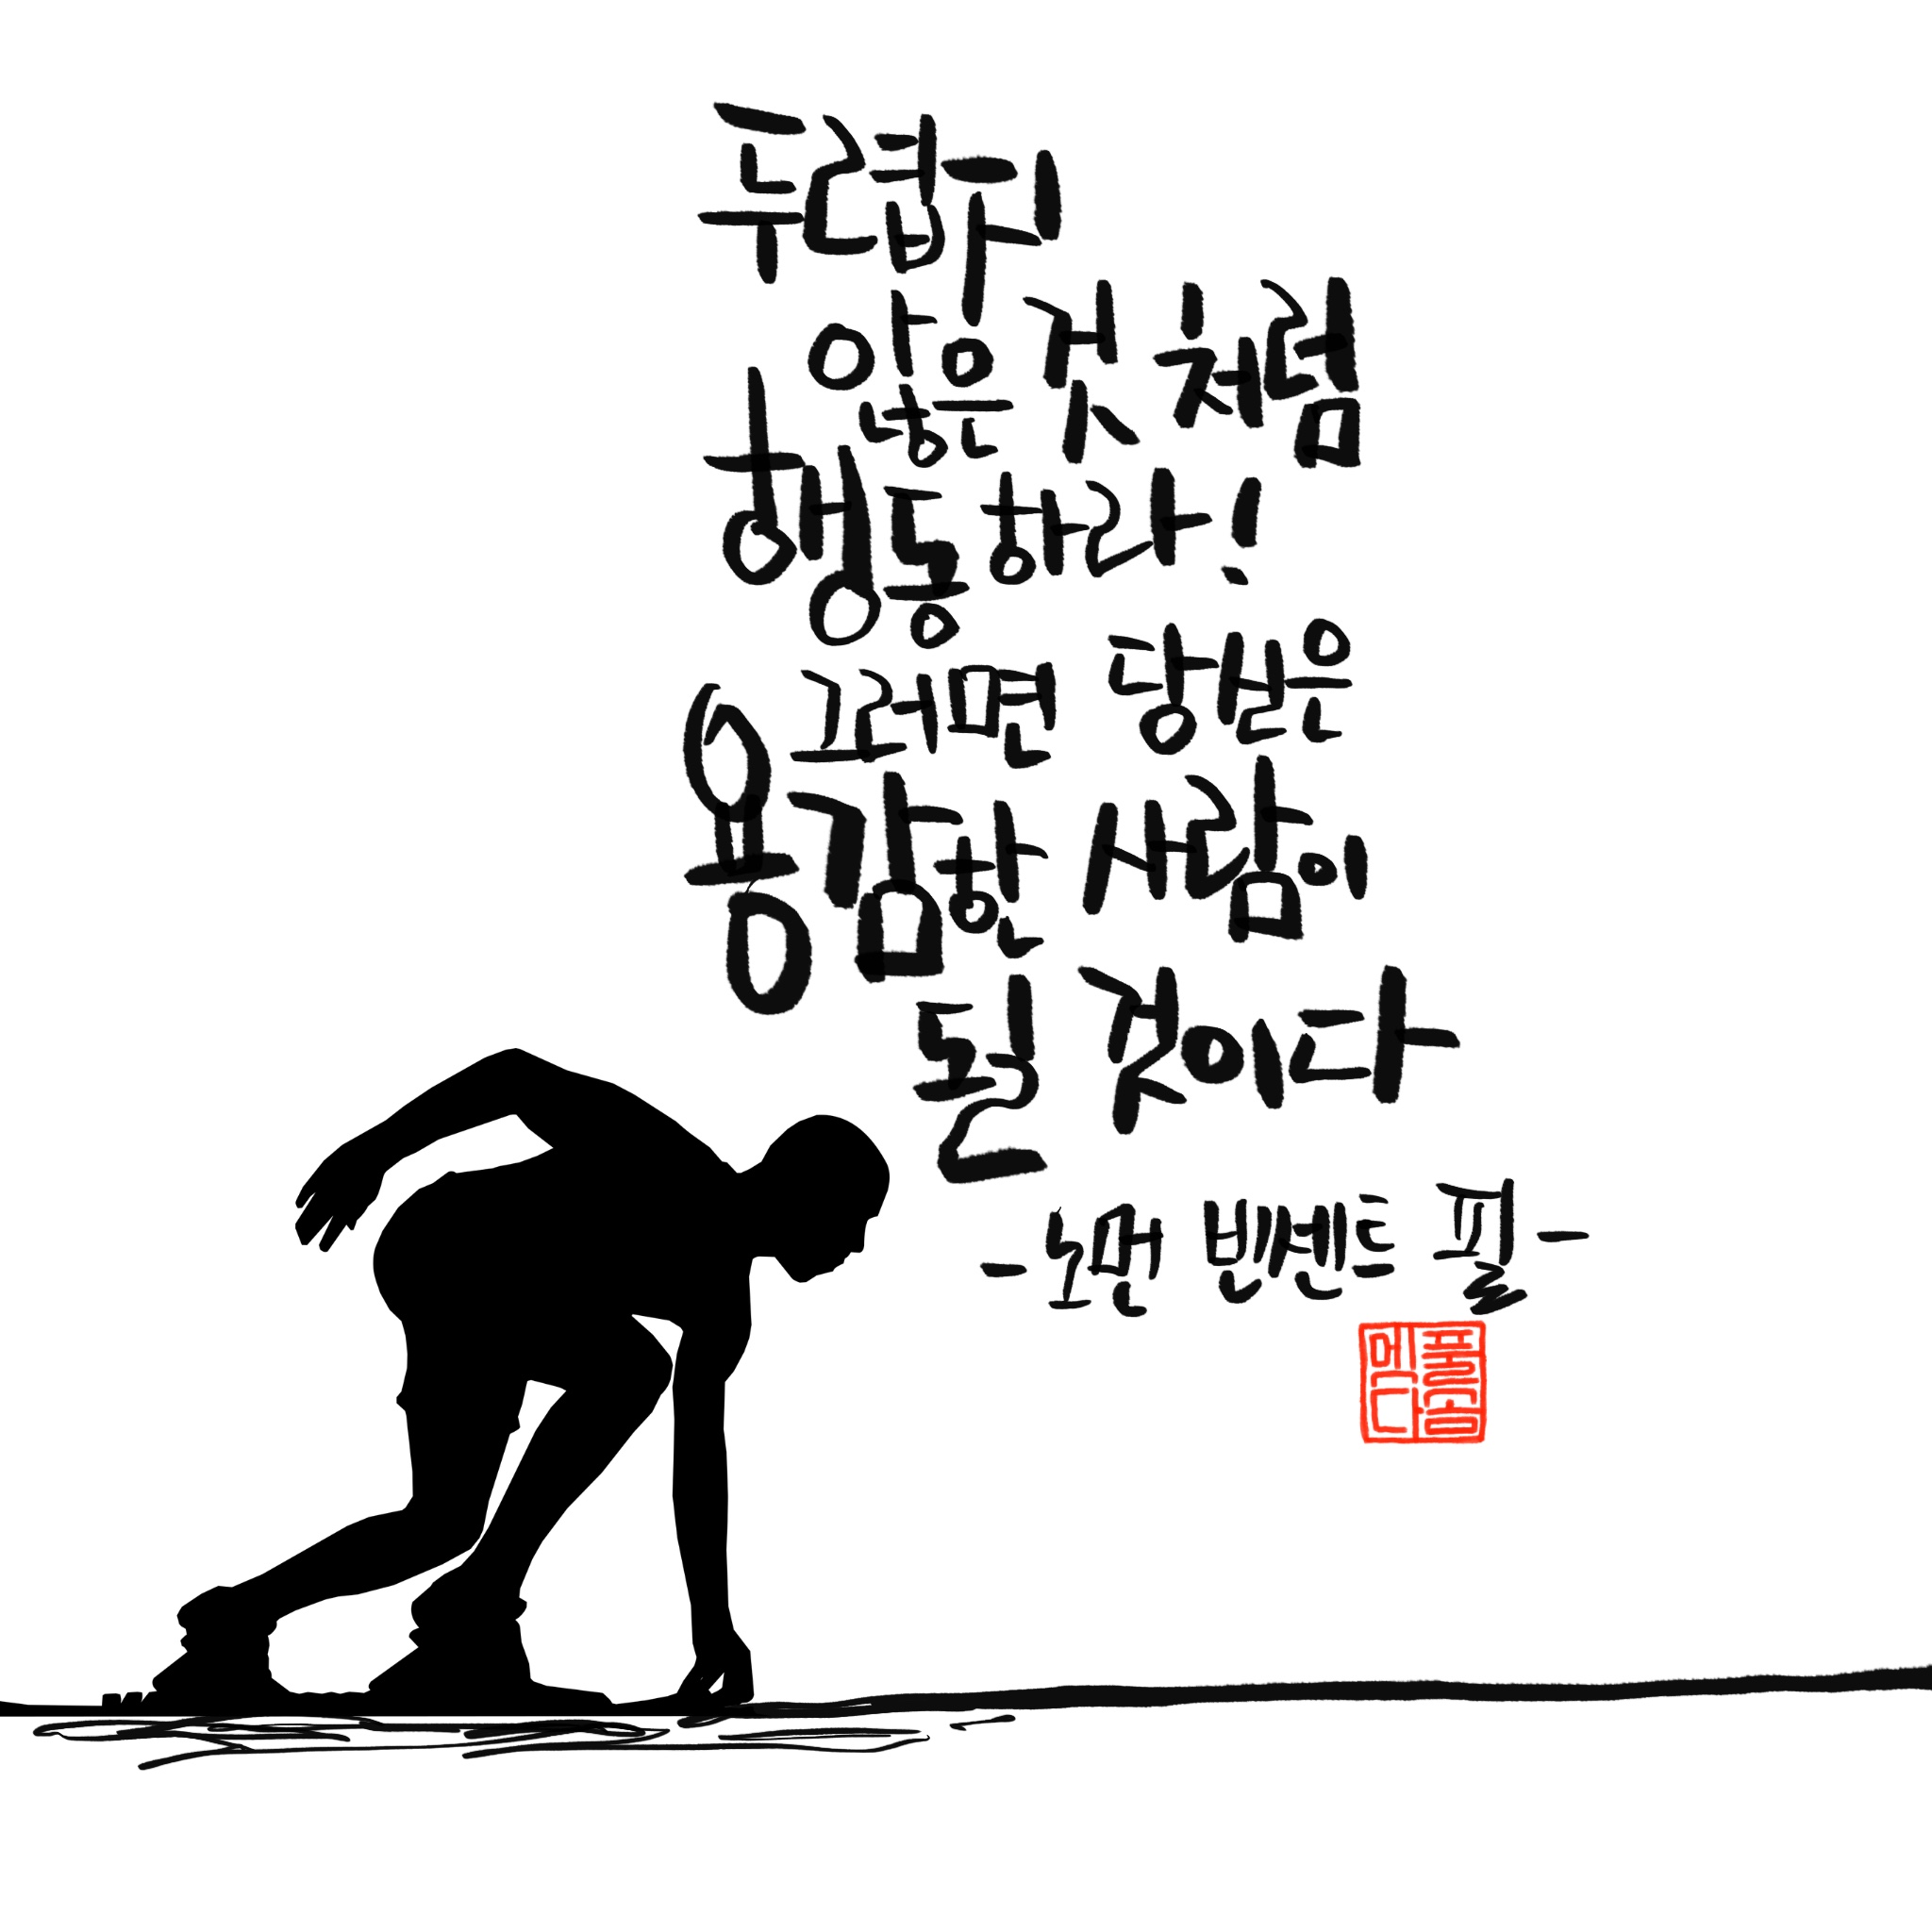 두렵지
않은 것 처럼
행동하라!
그러면 당신은
용감한 사람이
될 것이다
-노먼 빈센트 필-